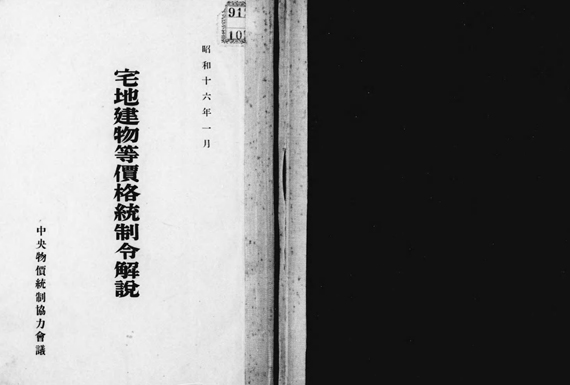 91
10
昭和十六年一月
宅地建物等價格統制令解說
中央物價統制協力會議